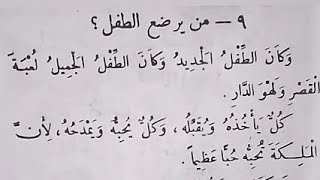 ٩ — من يرضع الطفل ؟
وَكَانَ الطِّفْلُ الْجَدِيدُ وَكَانَ الطِّفْلُ الْجَمِيلُ لُعْبَةَ
الْقَصْرِ وَلَهْوَ الدَّارِ .
كُلٌّ يَأْخُذُهُ وَيُقَبِّلُهُ ، وَكُلٌّ يُحِبُّهُ وَيَمْدَحُهُ ، لِأَنَّ
الْمَلِكَةَ تُحِبُّهُ حُبًّا عَظِيمًا .